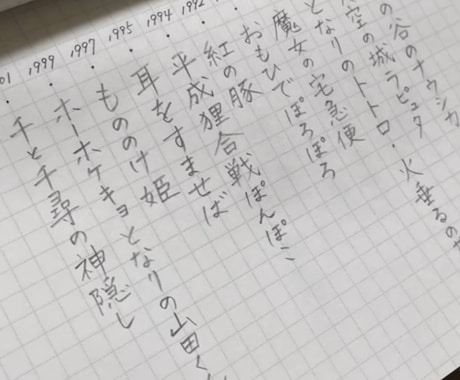 の谷のナウシカ
空の城ラピュタ
となりのトトロ・火垂るの
魔女の宅急便
おもひでぽろぽろ
紅の豚
平成狸合戦ぽんぽこ
耳をすませば
もののけ姫
ホーホケキョとなりの山田く
千と千尋の神隠し
1992
1994
1995
1997
1999
01